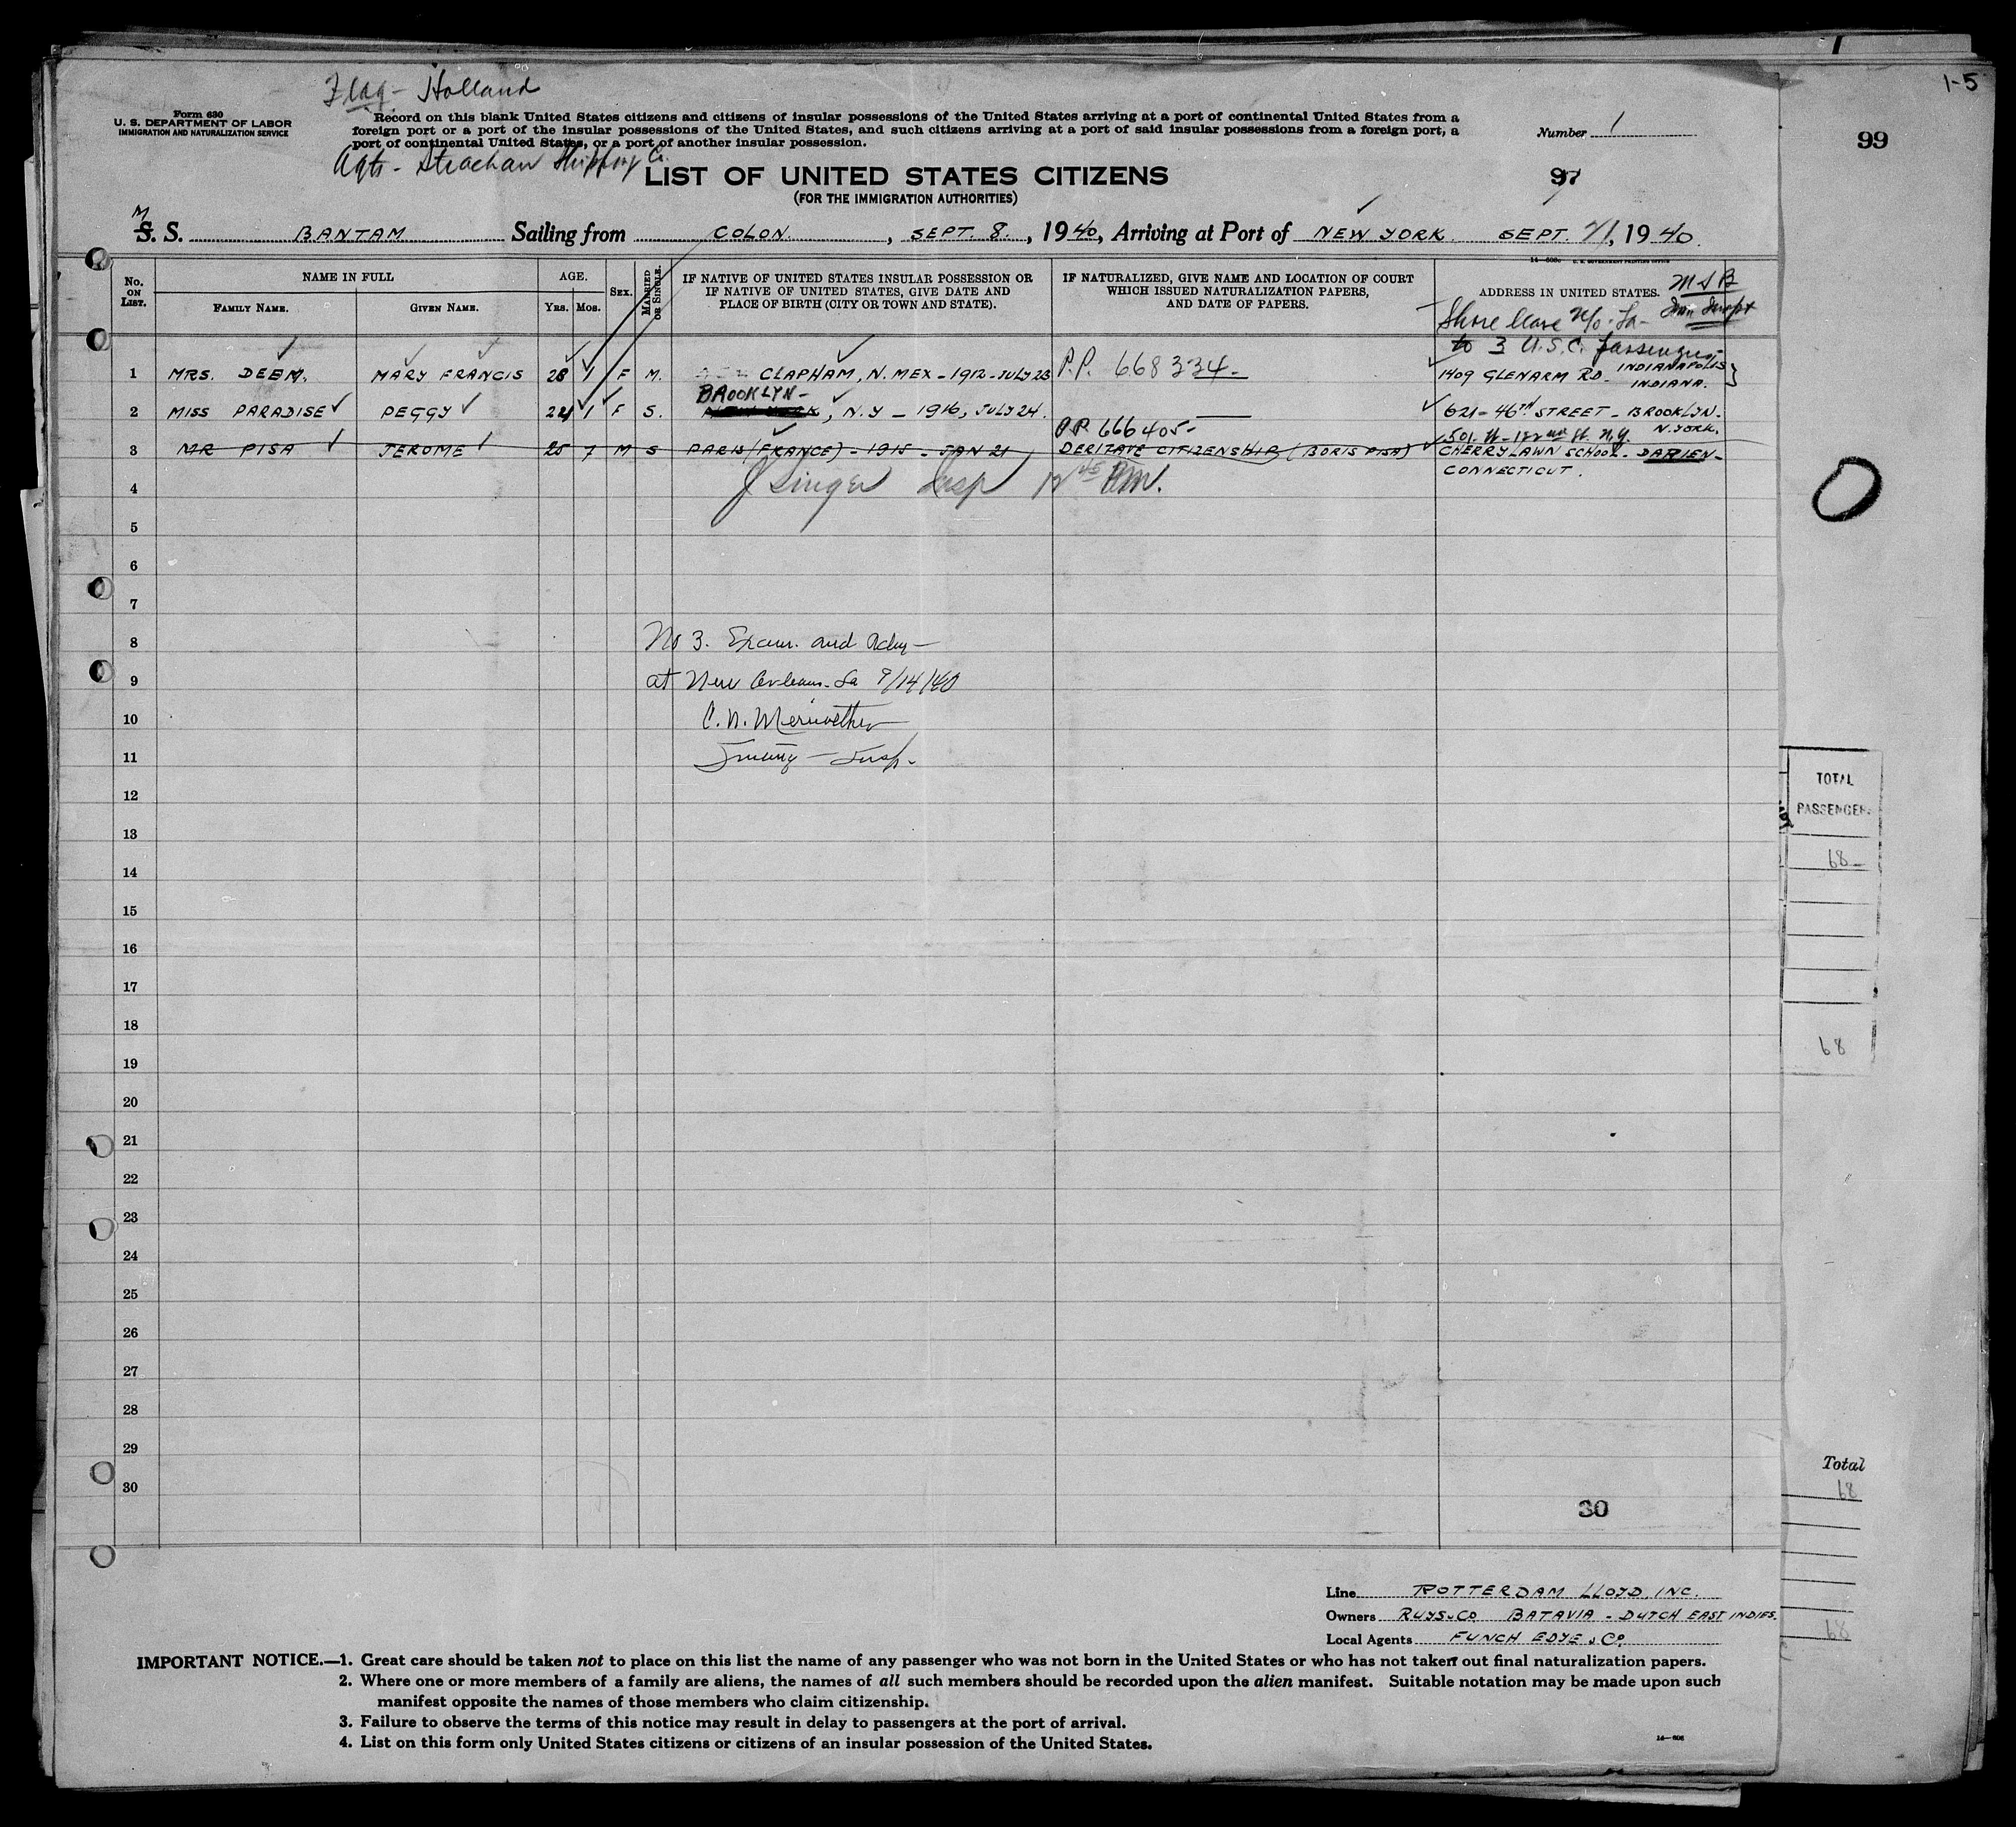 1
1-5
99
Flag - Holland
Form 630
U. S. DEPARTMENT OF LABOR
IMMIGRATION AND NATURALIZATION SERVICE
Record on this blank United States citizens and citizens of insular possessions of the United States arriving at a port of continental United States from a
foreign port or a port of the insular possessions of the United States, and such citizens arriving at a port of said insular possessions from a foreign port, a
port of continental United States, or a port of another insular possession.
Number 1
Agts - Strachan Shipping Co.
LIST OF UNITED STATES CITIZENS
(FOR THE IMMIGRATION AUTHORITIES)
97
M
S. S. BANTAM Sailing from COLON, SEPT. 8., 1940, Arriving at Port of NEW YORK SEPT. 21, 1940.
No. ON LIST.
NAME IN FULL
FAMILY NAME.
GIVEN NAME.
AGE.
YRS.
MOS.
SEX.
MARRIED OR SINGLE.
IF NATIVE OF UNITED STATES INSULAR POSSESSION OR
IF NATIVE OF UNITED STATES, GIVE DATE AND
PLACE OF BIRTH (CITY OR TOWN AND STATE).
IF NATURALIZED, GIVE NAME AND LOCATION OF COURT
WHICH ISSUED NATURALIZATION PAPERS,
AND DATE OF PAPERS.
ADDRESS IN UNITED STATES.
MSB
Shore leave N/O. La-
to 3 U.S.C. passengers
1 MRS. DEEM. MARY FRANCIS 28 1 F M. CLAPHAM, N. MEX - 1912 - JULY 23 P.P. 668334- 1409 GLENARM RD. INDIANAPOLIS
INDIANA.
BROOKLYN-
2 MISS PARADISE PEGGY 24 1 F S. NEW YORK, N.Y - 1916, JULY 24. 621-46TH STREET - BROOKLYN.
N.YORK.
P.P. 666405-
3 MR PISA JEROME 25 7 M S PARIS (FRANCE) - 1915 - JAN 21 DERITATE CITIZENSHIP (BORIS PISA) CHERRY LAWN SCHOOL - DARIEN-
CONNECTICUT.
J Singer Insp
4
5
6
7
8 No 3. Exam. and Adm-
9 at New Orleans. La 9/14/40
10 C. N. Meriwether
11 Insp.
12
13
14
15
16
17
18
19
20
21
22
23
24
25
26
27
28
29
30
30
TOTAL
PASSENGER
68
68
Total
68
68
Line ROTTERDAM LLOYD, INC.
Owners RUYS & CO BATAVIA - DUTCH EAST INDIES.
Local Agents FUNCH EDYE & CO.
IMPORTANT NOTICE.—1. Great care should be taken not to place on this list the name of any passenger who was not born in the United States or who has not taken out final naturalization papers.
2. Where one or more members of a family are aliens, the names of all such members should be recorded upon the alien manifest. Suitable notation may be made upon such
manifest opposite the names of those members who claim citizenship.
3. Failure to observe the terms of this notice may result in delay to passengers at the port of arrival.
4. List on this form only United States citizens or citizens of an insular possession of the United States.